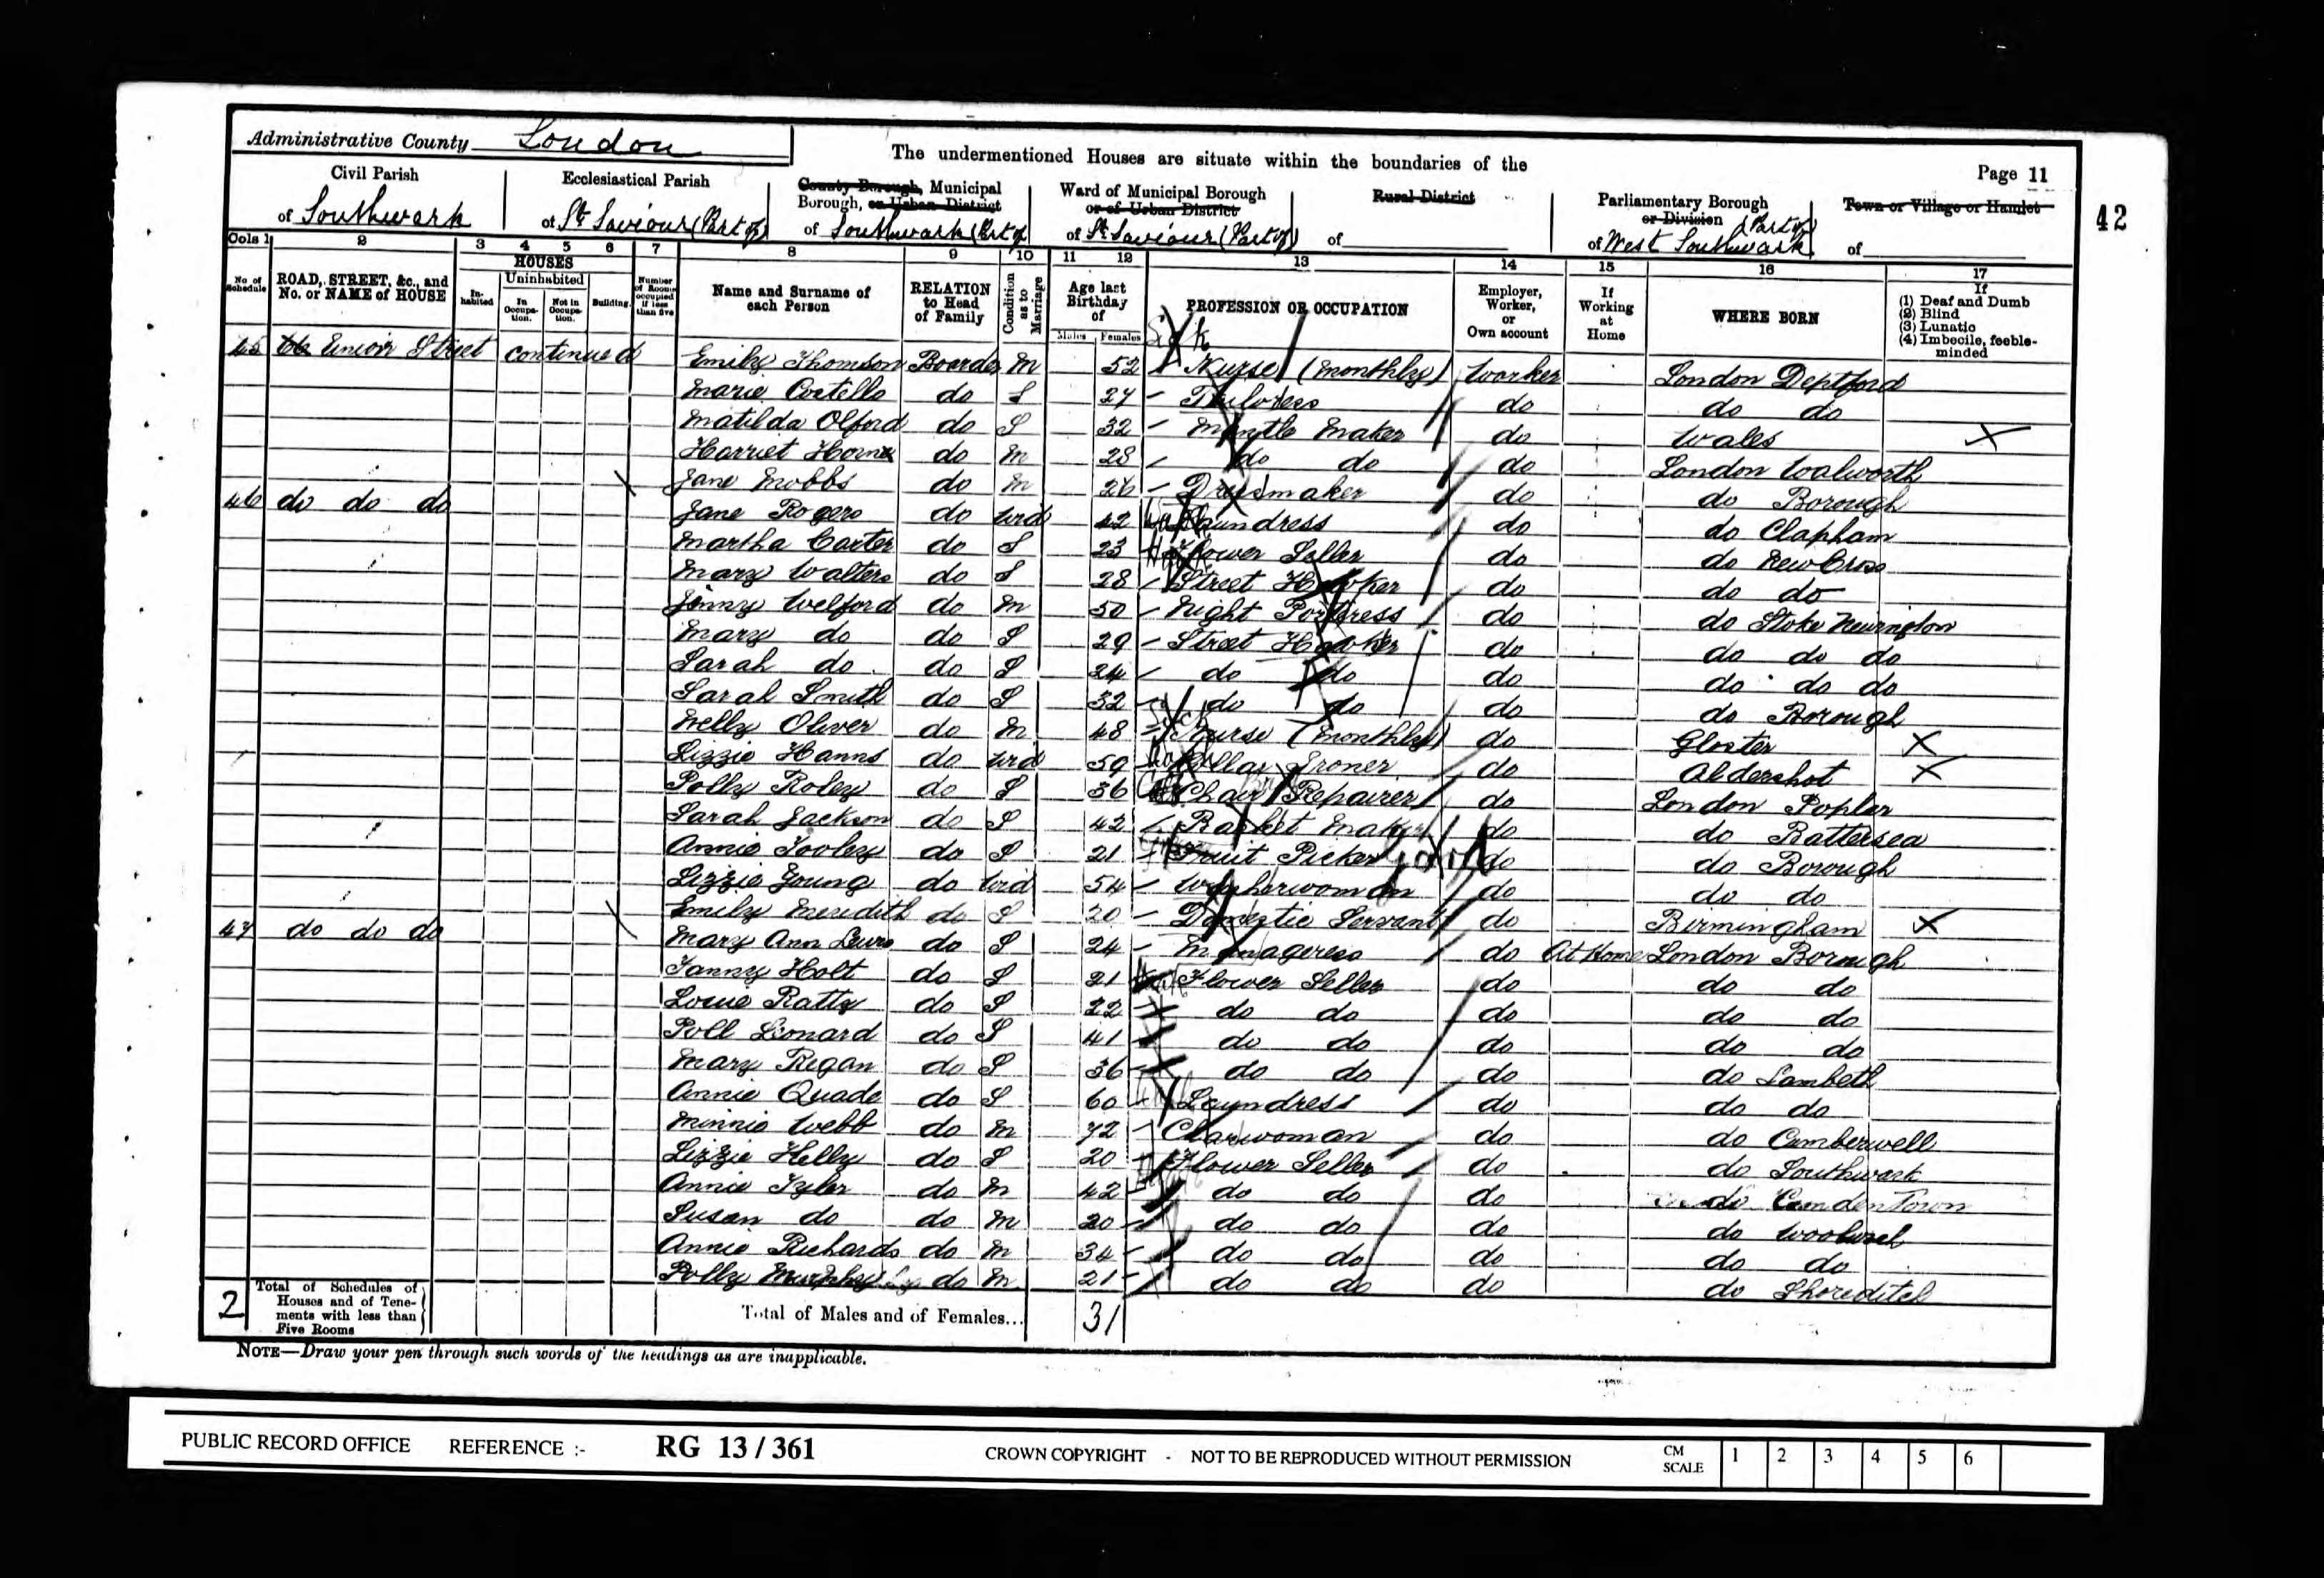 Administrative County London
The undermentioned Houses are situate within the boundaries of the
Page 11
42
Civil Parish of Southwark
Ecclesiastical Parish of St Saviour (Part of)
County Borough, Municipal Borough, or Urban District of Southwark (Part of)
Ward of Municipal Borough or of Urban District of St Saviour (Part of)
Rural District of
Parliamentary Borough or Division of West Southwark (Part of)
Town or Village or Hamlet of
Cols 1 2 3 4 5 6 7 8 9 10 11 12 13 14 15 16 17
No of Schedule
ROAD, STREET, &c., and No. or NAME of HOUSE
HOUSES
Inhabited
Uninhabited
In Occupation.
Not in Occupation.
Building.
Number of Rooms occupied if less than five
Name and Surname of each Person
RELATION to Head of Family
Condition as to Marriage
Age last Birthday of
Males Females
PROFESSION OR OCCUPATION
Employer, Worker, or Own account
If Working at Home
WHERE BORN
If (1) Deaf and Dumb (2) Blind (3) Lunatic (4) Imbecile, feeble-minded
Sick
45 66 Union Street continued Emily Thomson Boarder M 52 Nurse (monthly) Worker London Deptford
Marie Costello do S 27 Tailoress do do do
Matilda Olford do S 32 Mantle Maker do Wales X
Harriet Horne do M 28 do do do London Walworth
Jane Mobbs do M 26 Dressmaker do do Borough
46 do do do Jane Rogers do Wid 42 Laundress do do Clapham
Martha Carter do S 23 Flower Seller do do New Cross
Mary Walters do S 28 Street Hawker do do do
Jinny Welford do M 50 Night Portress do do Stoke Newington
Mary do do S 29 Street Hawker do do do do
Sarah do do S 24 do do do do do do
Sarah Smith do S 32 do do do do Borough
Nelly Oliver do M 48 Nurse (monthly) do Gloster X
Lizzie Hanns do Wid 59 Collar Ironer do Aldershot X
Polly Roley do S 36 Chair Repairer do London Poplar
Sarah Jackson do S 42 Basket Maker do do Battersea
Annie Tooley do S 21 Fruit Picker do do Borough
Lizzie Young do Wid 54 Washerwoman do do do
Emily Meredith do S 20 Domestic Servant do Birmingham X
47 do do do Mary Ann Lewis do S 24 Manageress do At Home London Borough
Fanny Holt do S 21 Flower Seller do do do
Louie Ratty do S 22 do do do do do
Poll Leonard do S 41 do do do do do
Mary Regan do S 36 do do do do Lambeth
Annie Quade do S 60 Laundress do do do
Minnie Webb do M 72 Charwoman do do Camberwell
Lizzie Helly do S 20 Flower Seller do do Southwark
Annie Tyler do M 42 do do do do Camden Town
Susan do do M 20 do do do do Woolwich
Annie Richards do M 34 do do do do do
Polly Murphy do M 21 do do do do Shoreditch
2 Total of Schedules of Houses and of Tenements with less than Five Rooms
Total of Males and of Females... 31
NOTE—Draw your pen through such words of the headings as are inapplicable.
PUBLIC RECORD OFFICE REFERENCE :- RG 13 / 361 CROWN COPYRIGHT - NOT TO BE REPRODUCED WITHOUT PERMISSION CM SCALE 1 2 3 4 5 6